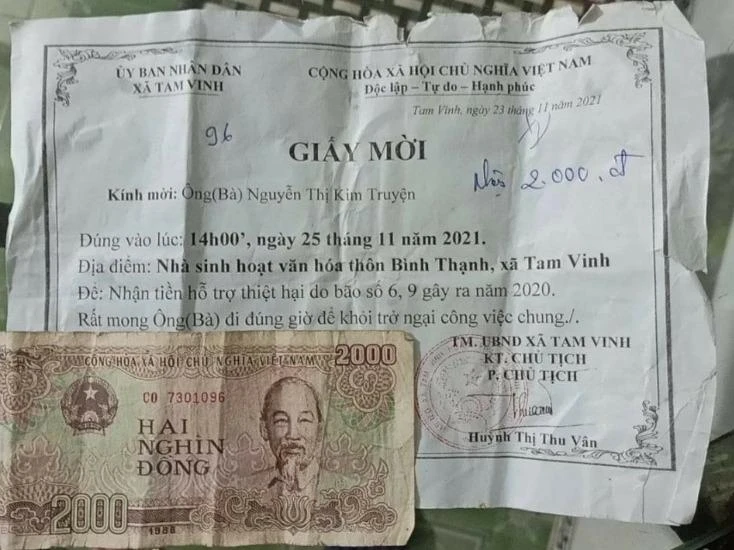 ỦY BAN NHÂN DÂN
XÃ TAM VINH
CỘNG HÒA XÃ HỘI CHỦ NGHĨA VIỆT NAM
Độc lập – Tự do – Hạnh phúc
Tam Vinh, ngày 23 tháng 11 năm 2021
96
GIẤY MỜI
2.000.đ
Kính mời: Ông(Bà) Nguyễn Thị Kim Truyện
Đúng vào lúc: 14h00’, ngày 25 tháng 11 năm 2021.
Địa điểm: Nhà sinh hoạt văn hóa thôn Bình Thạnh, xã Tam Vinh
Đề: Nhận tiền hỗ trợ thiệt hại do bão số 6, 9 gây ra năm 2020.
Rất mong Ông(Bà) đi đúng giờ để khỏi trở ngại công việc chung./.
TM. UBND XÃ TAM VINH
KT. CHỦ TỊCH
P. CHỦ TỊCH
Huỳnh Thị Thu Vân
CỘNG HÒA XÃ HỘI CHỦ NGHĨA VIỆT NAM
2000
CO 7301096
HAI
NGHÌN
ĐỒNG
2000
1988